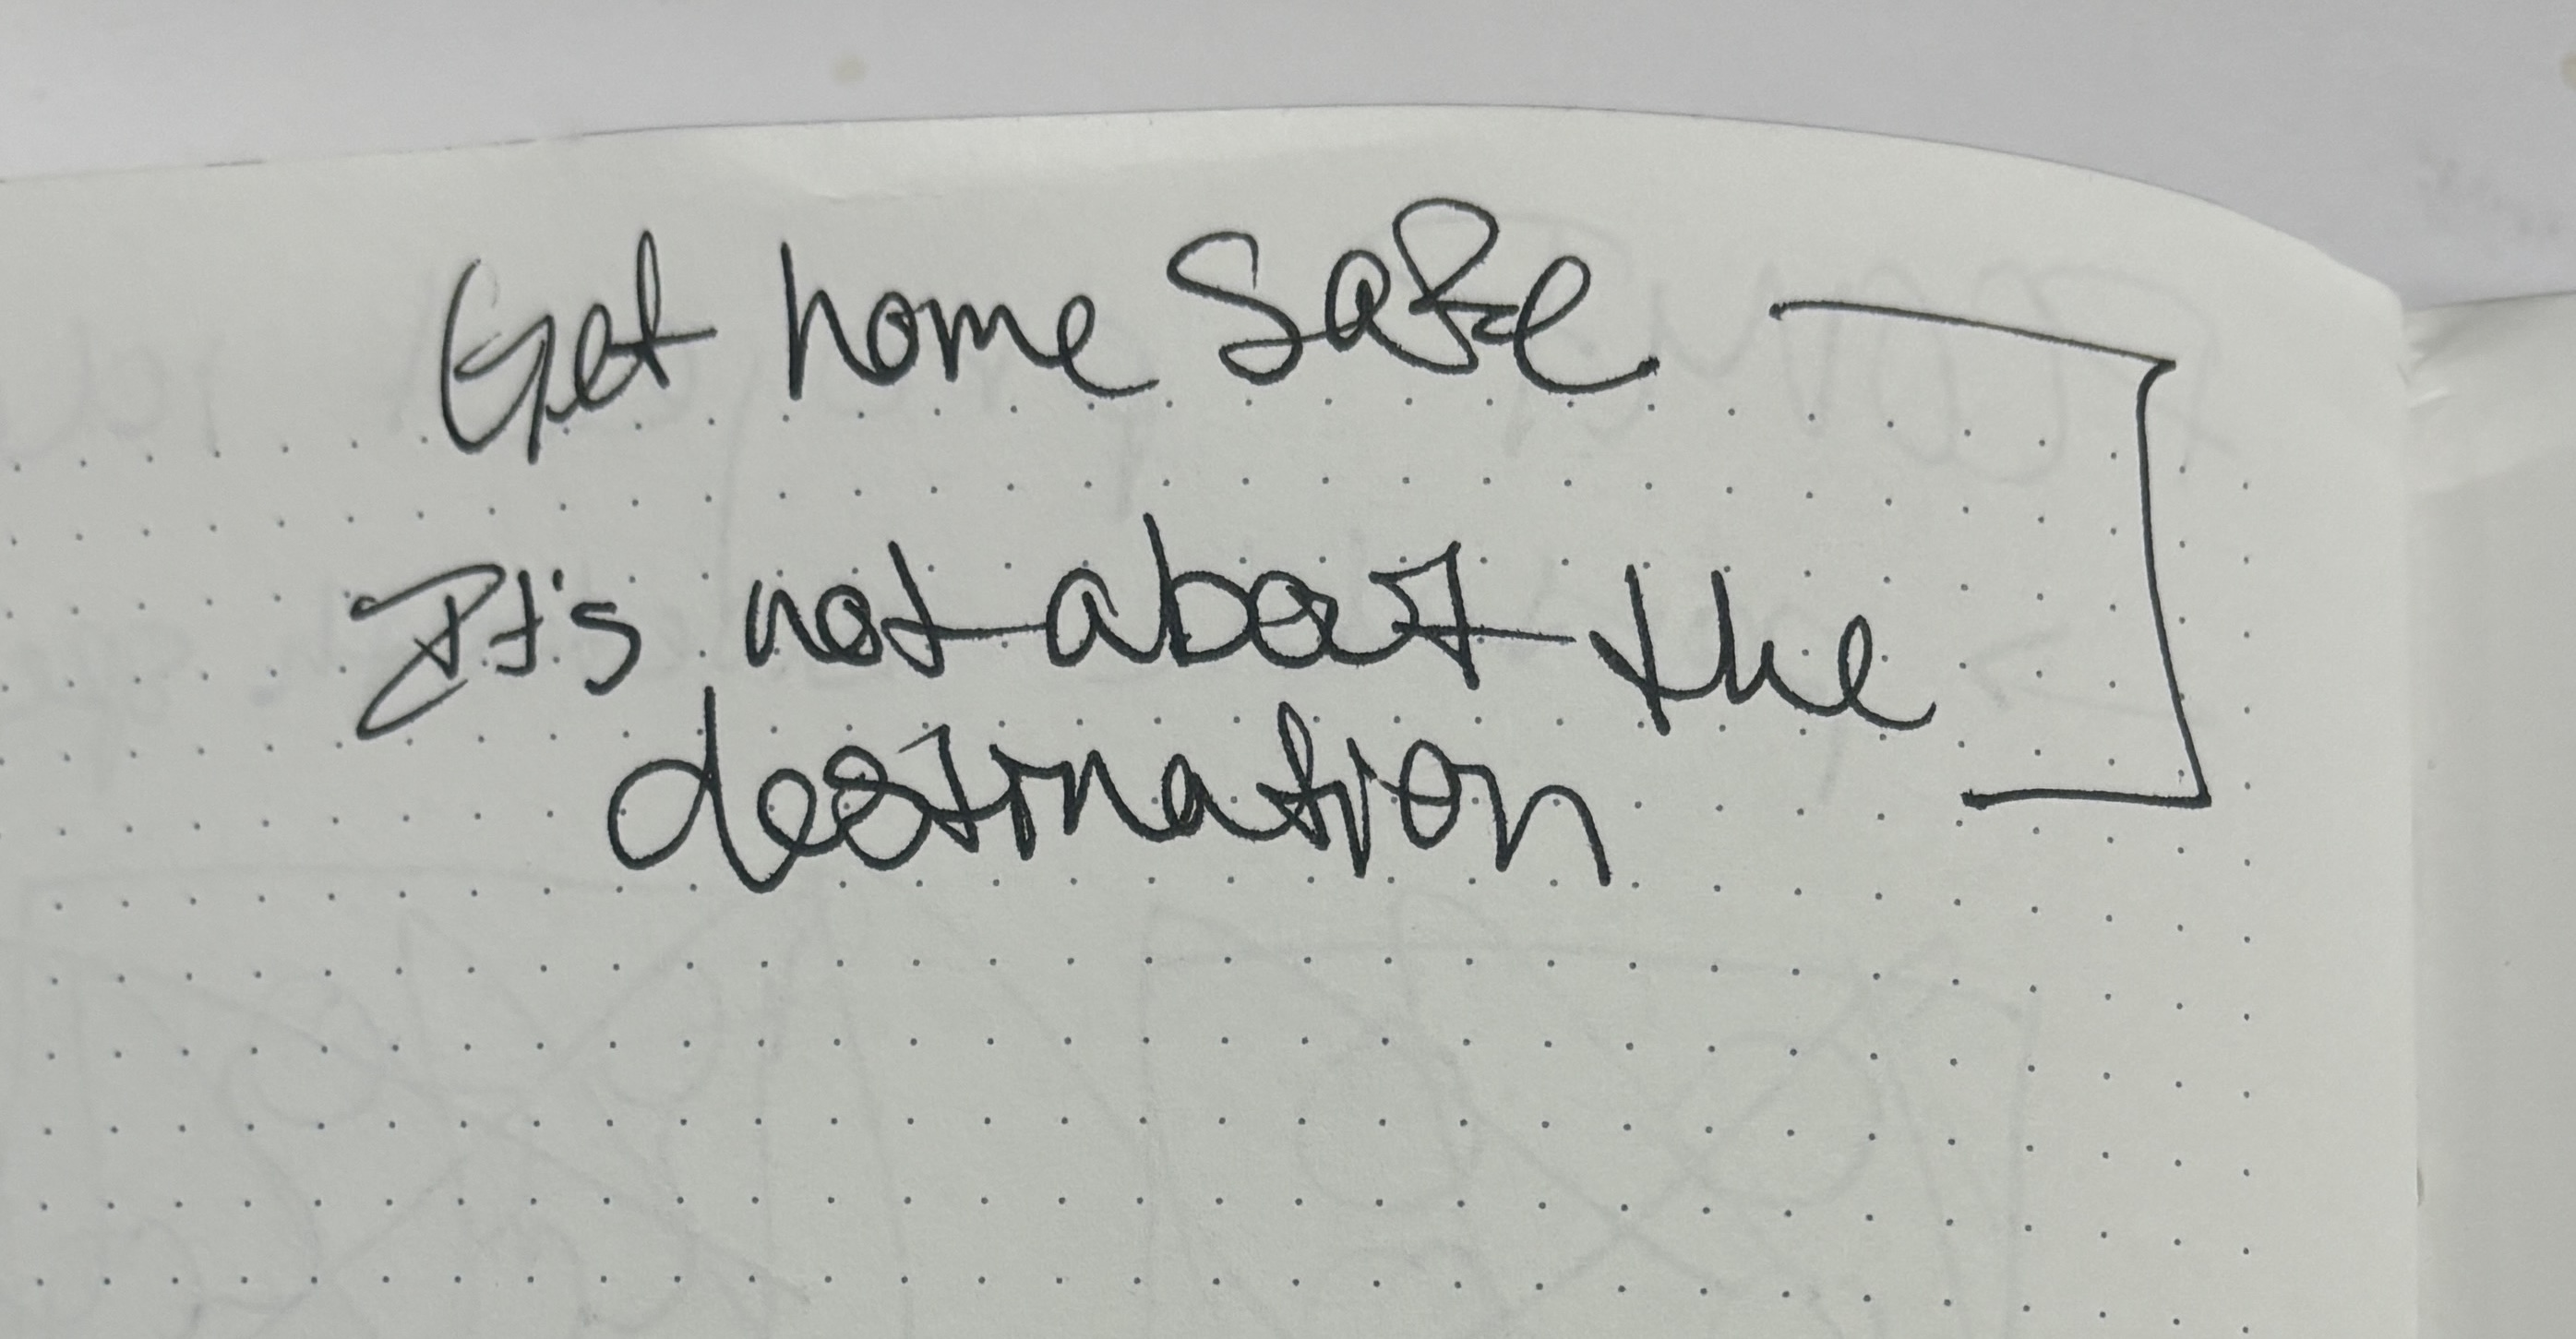 Get home safe
It's not about the
destination